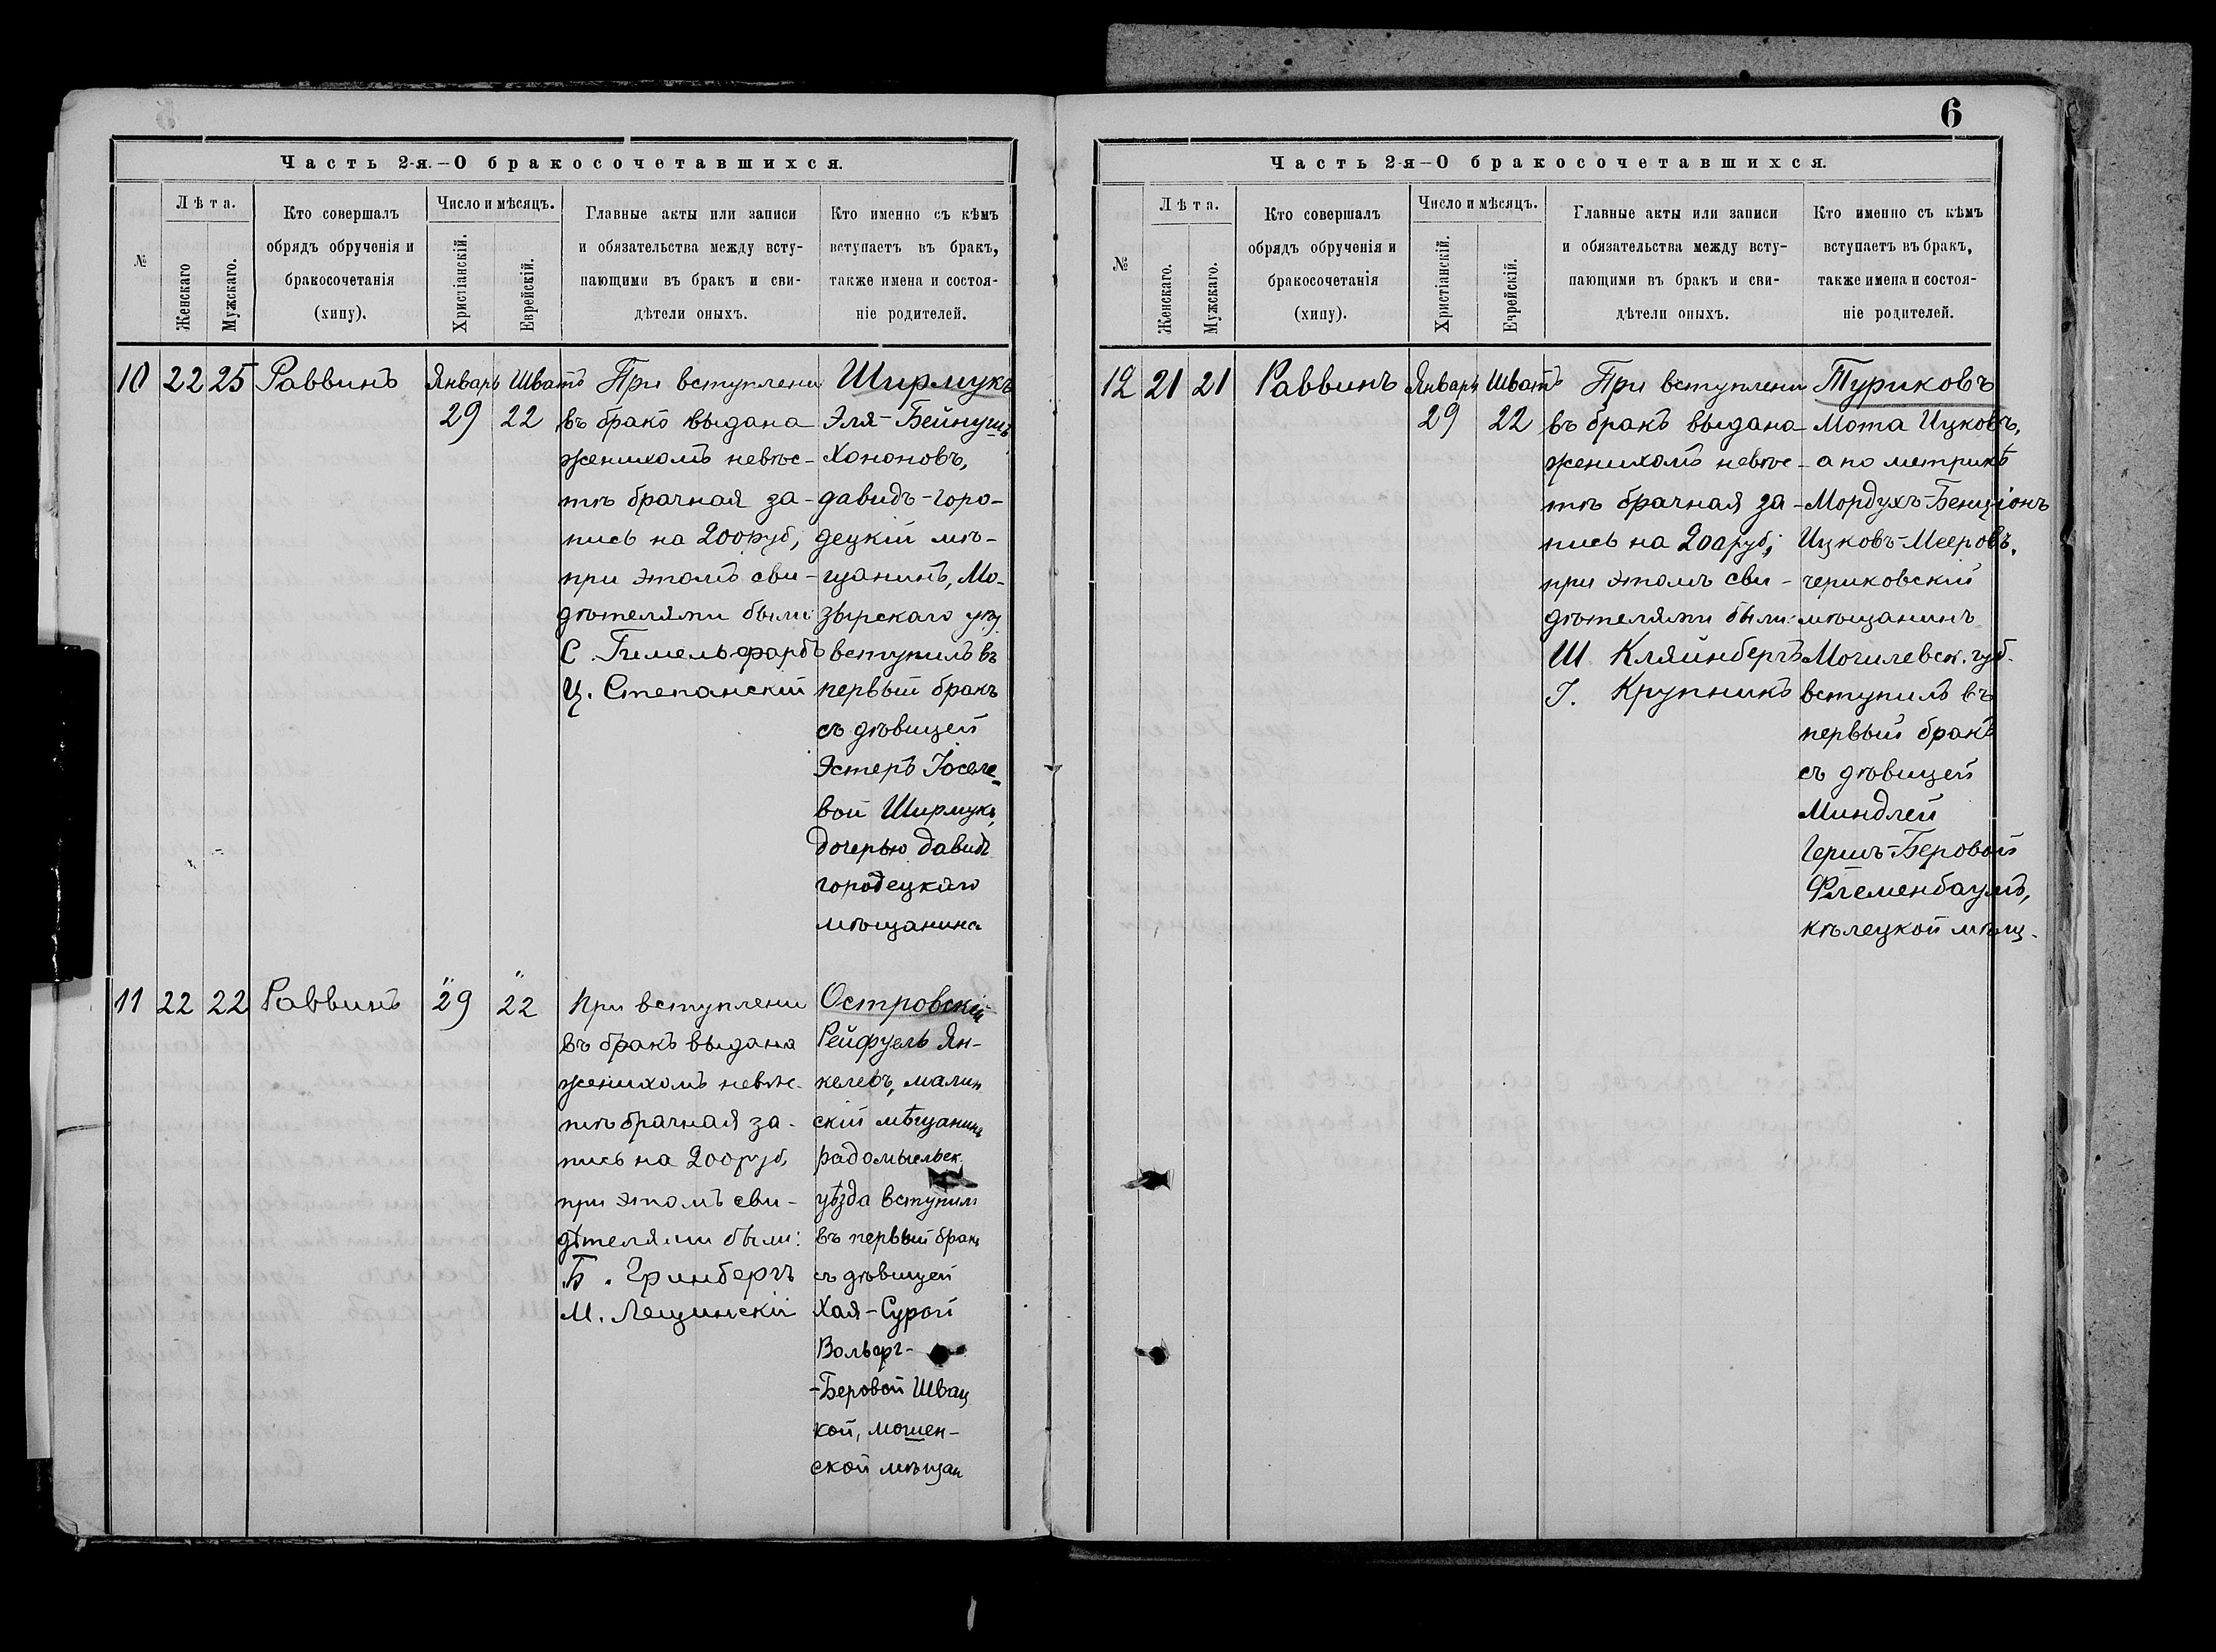 Часть 2-я.—О бракосочетавшихся.
№
Лѣта.
Женскаго
Мужскаго.
Кто совершалъ
обрядъ обрученія и
бракосочетанія
(хипу).
Число и мѣсяцъ.
Христіанскій.
Еврейскій.
Главные акты или записи
и обязательства между всту-
пающими въ бракъ и сви-
дѣтели оныхъ.
Кто именно съ кѣмъ
вступаетъ въ бракъ,
также имена и состоя-
ніе родителей.
10 22 25 Раввинъ
Январь Шватъ
29 22
При вступлени
въ бракъ выдана
женихомъ невѣс-
тѣ брачная за-
пись на 200 руб;
при этомъ сви-
дѣтелями были:
С. Гимельфарбъ
Ц. Степанскій
Ширмукъ
Эля-Бейнушъ
Хононовъ,
давидъ-горо-
децкій мѣ-
щанинъ, Мо-
зырскаго уѣз
вступилъ въ
первый бракъ
съ дѣвицей
Эстеръ Іоселе-
вой Ширмукъ,
дочерью давидъ
городецкаго
мѣщанина
11 22 22 Раввинъ
" "
29 22
При вступлени
въ бракъ выдана
женихомъ невѣс-
тѣ брачная за-
пись на 200 руб,
при этомъ сви-
дѣтелями были:
Б. Гринбергъ
М. Лещинскій
Островскій
Рейфуель Ян-
келевъ, малин
скій мѣщанинъ
радомысльск.
уѣзда вступилъ
въ первый бракъ
съ дѣвицей
Хая-Сурой
-Беровой Швац
кой, мошен-
ской мѣщан
6
Часть 2-я—О бракосочетавшихся.
№
Лѣта.
Женскаго.
Мужскаго.
Кто совершалъ
обрядъ обрученія и
бракосочетанія
(хипу).
Число и мѣсяцъ.
Христіанскій.
Еврейскій.
Главные акты или записи
и обязательства между всту-
пающими въ бракъ и сви-
дѣтели оныхъ.
Кто именно съ кѣмъ
вступаетъ въ бракъ,
также имена и состоя-
ніе родителей.
12 21 21 Раввинъ
Январь Шватъ
29 22
При вступлени
въ бракъ выдана
женихомъ невѣс-
тѣ брачная за-
пись на 200 руб;
при этомъ сви-
дѣтелями были:
Ш Кляйнбергъ
І. Крупникъ
Туриковъ
Мота Ицковъ,
а по метрикѣ
Мордухъ-Бенціонъ
Ицковъ-Мееровъ,
чериковскій
мѣщанинъ
Могилевск. губ.
вступилъ въ
первый бракъ
съ дѣвицей
Миндлей
Гершъ-Беровой
кѣлецкой мѣщ.